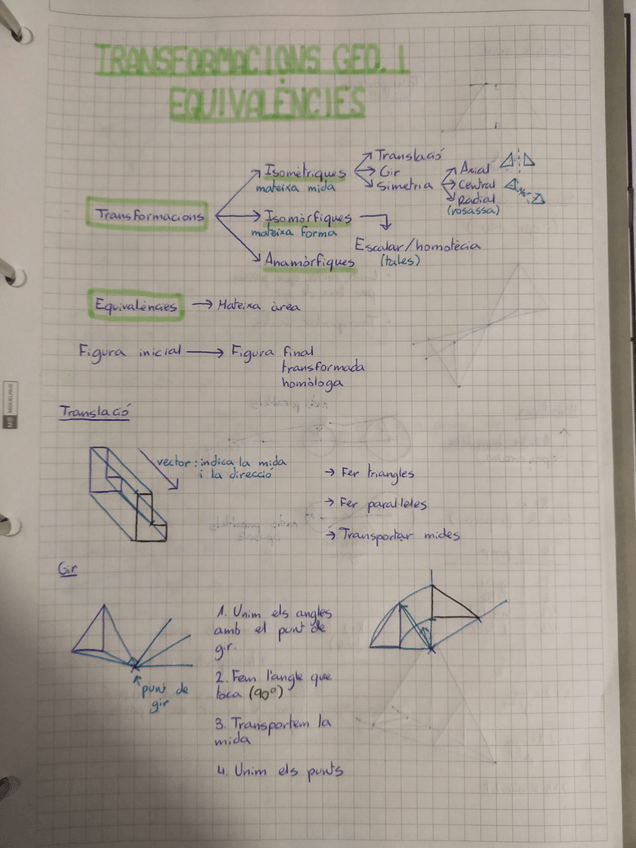 TRANSFORMACIONS GEO. I
EQUIVALÈNCIES
Transformacions
Isomètriques
mateixa mida
Translació
Gir
Simetria
Axial
Central
Radial
(rosassa)
Isomòrfiques
mateixa forma
Escalar/homotècia
(tales)
Anamòrfiques
Equivalències → Mateixa àrea
Figura inicial → Figura final
transformada
homòloga
Translació
vector: indica la mida
i la direcció
→ Fer triangles
→ Fer paral·leles
→ Transportar mides
Gir
punt de
gir
1. Unim els angles
amb el punt de
gir.
2. Fem l'angle que
toca (90º)
3. Transportem la
mida
4. Unim els punts